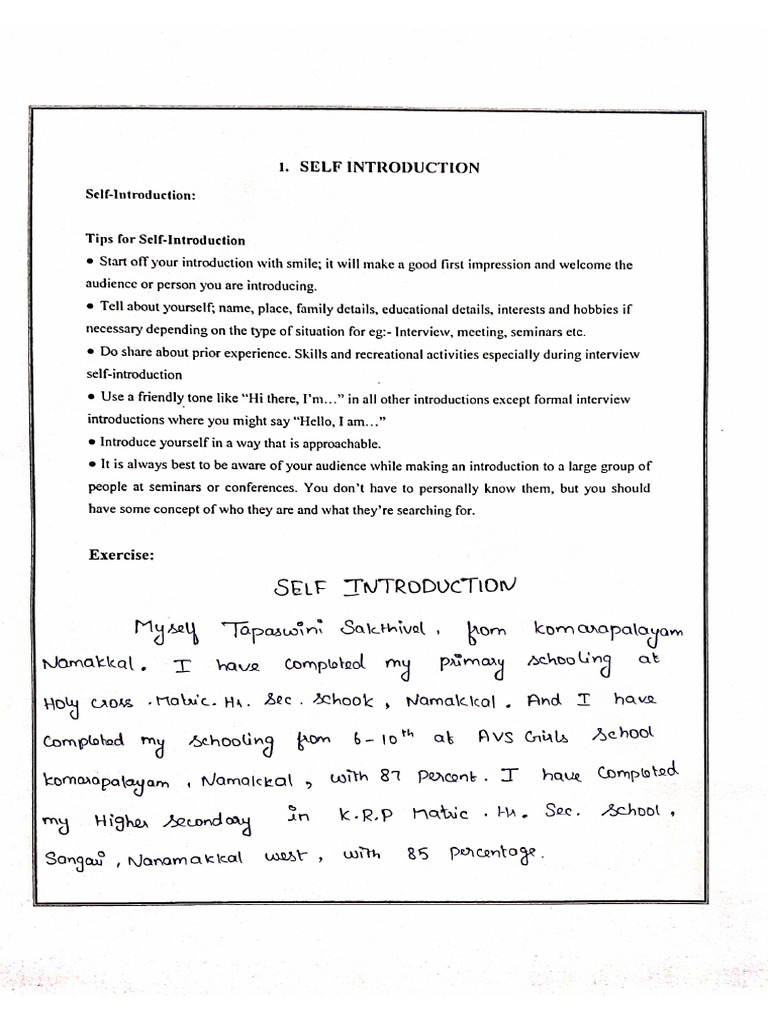 1. SELF INTRODUCTION
Self-Introduction:
Tips for Self-Introduction
• Start off your introduction with smile; it will make a good first impression and welcome the
audience or person you are introducing.
• Tell about yourself; name, place, family details, educational details, interests and hobbies if
necessary depending on the type of situation for eg:- Interview, meeting, seminars etc.
• Do share about prior experience. Skills and recreational activities especially during interview
self-introduction
• Use a friendly tone like “Hi there, I’m…” in all other introductions except formal interview
introductions where you might say “Hello, I am…”
• Introduce yourself in a way that is approachable.
• It is always best to be aware of your audience while making an introduction to a large group of
people at seminars or conferences. You don’t have to personally know them, but you should
have some concept of who they are and what they’re searching for.
Exercise:
SELF INTRODUCTION
Myself Tapaswini Sakthivel, from Komarapalayam
Namakkal. I have completed my primary schooling at
Holy cross .Matric. Hr. Sec. School, Namakkal. And I have
completed my schooling from 6-10th at AVS Girls School
Komarapalayam, Namakkal, with 87 percent. I have completed
my Higher secondary in K.R.P Matric. Hr. Sec. School,
Sangari, Nanamakkal west, with 85 percentage.